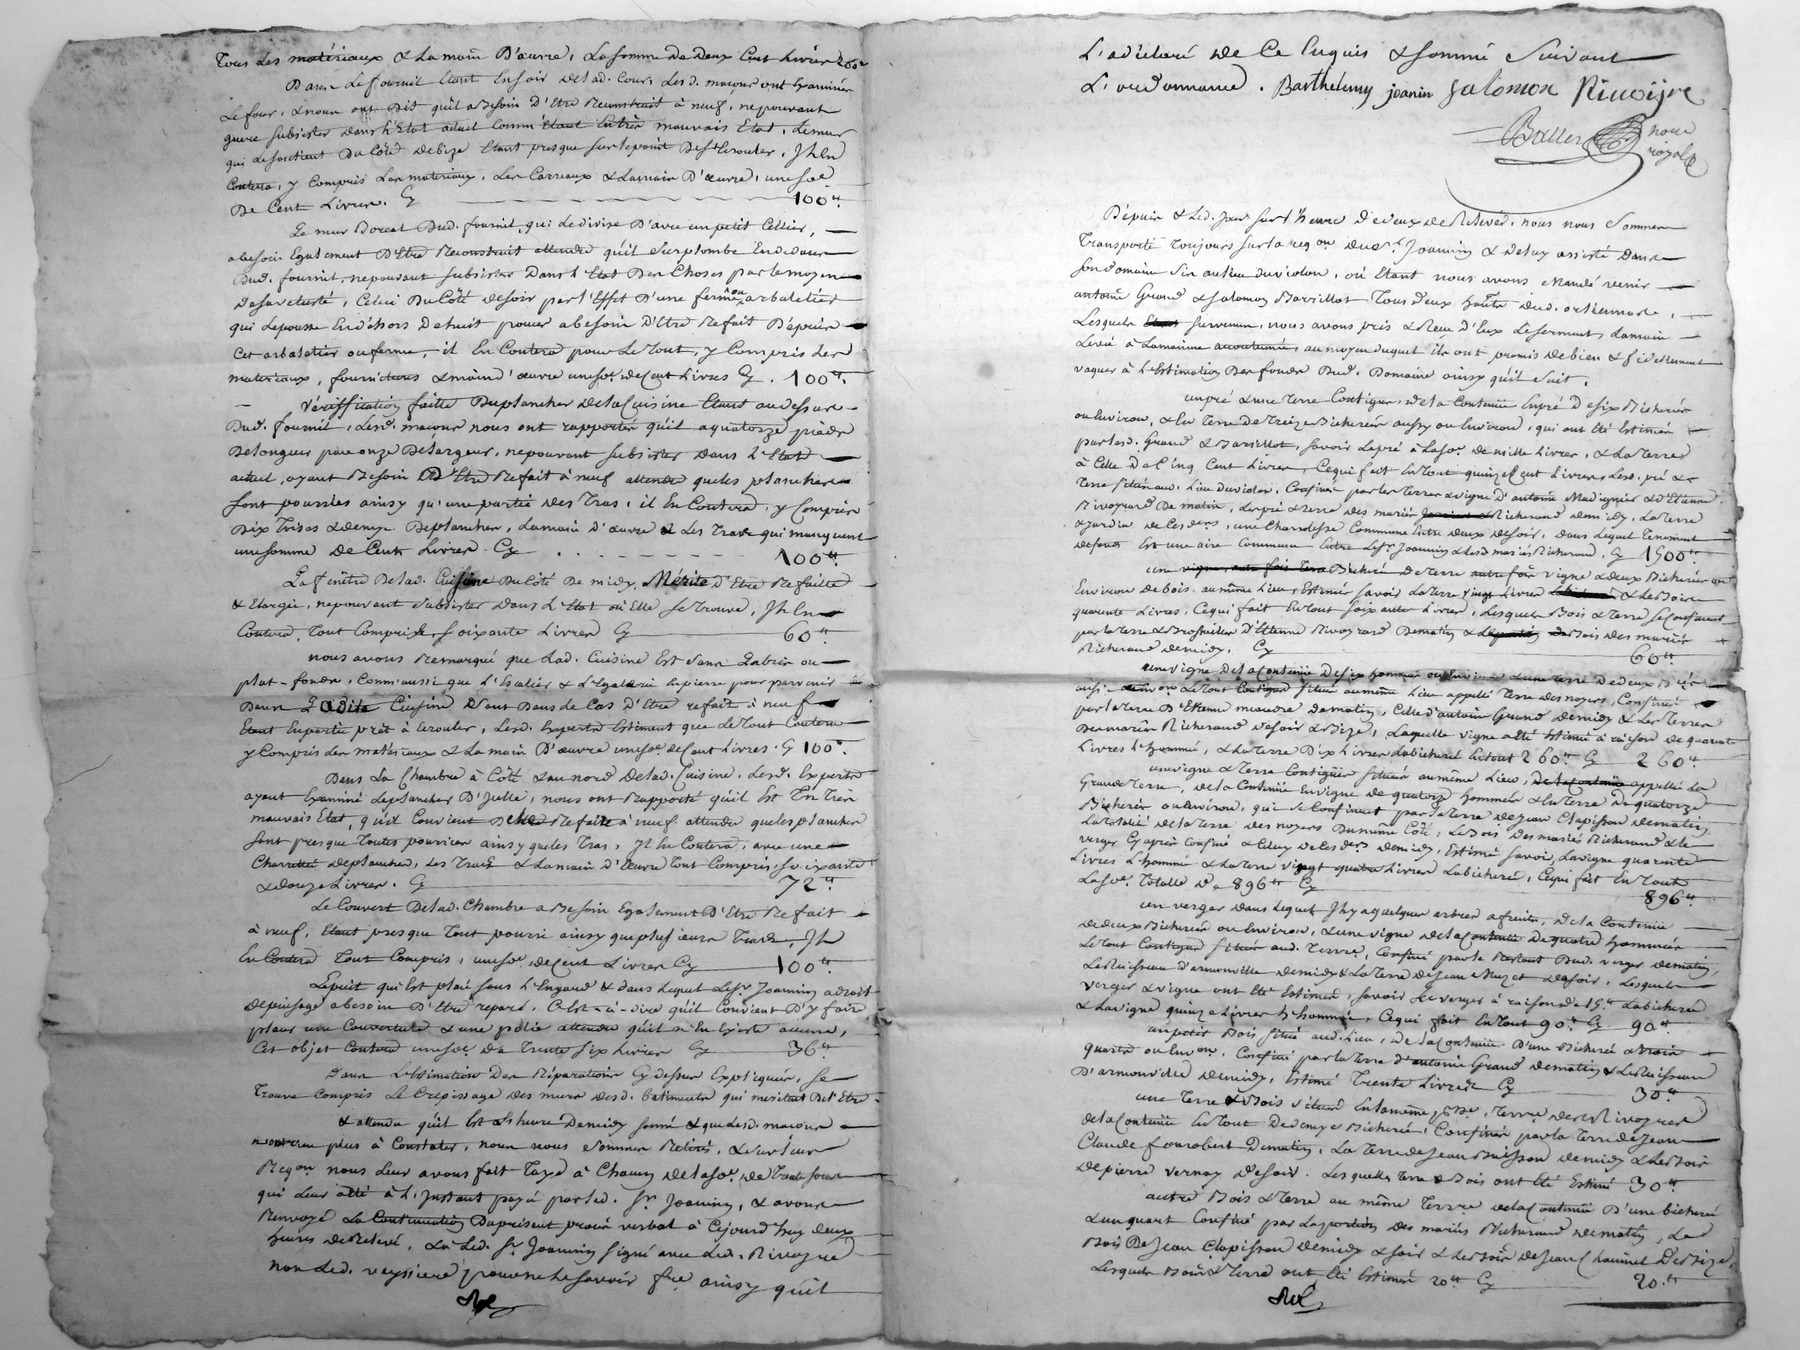 Tous Les matériaux & La main D'œuvre, La somme De Deux Cent Livres 200tt
Dans Le fournil Etant Ensoir delad. Cour, Les d. maçons ont Examiné
Le four, & nous ont Dit qu'il a Besoin D'Etre Reconstruit à neuf, ne pouvant
guere subsister Dans L'Etat actuel Comm' Etant En très mauvais Etat, Le mur
qui Le soutient Du Côté De bize Etant presque sur le point De s'Ecrouler, Il En
Coutera, y Compris Les materiaux, Les Carreaux & La main D'œuvre, une soe
De Cent Livres. Cy 100tt.
Le mur Boreal Dud. fournil, qui Le divise D'avec un petit Cellier,
a besoin Egalement D'Etre Reconstruit attendu qu'il surplombe En dedans
Dud. fournil, ne pouvant subsister Dans L'Etat Des Choses par le moyen
De sa vetusté, Celui Du Côté de soir par l'Effet D'une ferme ou arbaletier
qui Le pousse En dehors De huit pouces a besoin D'Etre Refait Depuis
Cet arbaletier ou ferme, il En Coutera pour Le Tout, y Compris Les
materiaux, fournitures & main d'œuvre une soe. de Cent Livres Cy. 100tt.
Vériffication faitte Du plancher de la Cuisine Etant au dessus
Dud. fournil, Lesd. maçons nous ont rapporté qu'il a quatorze pieds
De longueur sur onze De Largeur, ne pouvant subsister Dans L'Etat
actuel, ayant Besoin D'Etre Refait à neuf attendu que les planches
sont pourries ainsy qu'une partie des Tras, il En Coutera, y Compris
Dix Toises & demye De plancher, La main D'œuvre & Les Traves qui manquent
une somme De Cent Livres Cy 100tt
La fenêtre De lad. Cuisine Du Côté De midy, Mérite D'Etre Refaitte
& Elargie, ne pouvant subsister Dans L'Etat où Elle se Trouve, Il En
Coutera, Tout Compris, soixante Livres Cy 60tt
nous avons Remarqué que Lad. Cuisine Est sans Labris ou
plat-fonds, Comm'aussi que L'Escalier & L'Egalerie en pierre pour parvenir
Dans Ladite Cuisine sont Dans Le Cas D'Etre refait à neuf
Etant En partie prêt à Ecrouler, Lesd. Experts Estiment que Le Tout Coutera
y Compris Les matériaux & La main D'œuvre une soe de Cent Livres. Cy 100tt.
Dans La Chambre à Côté & au nord De lad. Cuisine, Lesd. Experts
ayant Examiné Le plancher D'Icelle, nous ont Rapporté qu'il Est En très
mauvais Etat, qu'il Convient De Le Refaire à neuf attendu que les planches
sont presque Toutes pourries ainsy que les Tras, Il En Coutera, avec une
Charretée De planches, Les Tras & La main D'œuvre Tout Compris, soixante
& douze Livres. Cy 72tt
Le Couvert De lad. Chambre a Besoin Egalement D'Etre Refait
à neuf, Etant presque Tout pourri ainsy que plusieurs Tras, Il
En Coutera Tout Compris, une soe de Cent Livres Cy 100tt.
Le puit qui Est placé sous L'Engard & dans Lequel Le Sr Joannin a droit
De puisage a besoin D'Etre reparé, C'est-à-dire qu'il Convient D'y faire
placer une Couverture & une polie attendu qu'il n'En Existe aucune,
Cet objet Coutera une soe De Trente six Livres Cy 36tt.
Dans L'Estimation Des Réparations Cy dessus Expliquées, se
Trouve Compris Le Crepissage des murs desd. batiments qui meritent De L'Etre
& attendu qu'il Est L'heure De midy sonné & que Lesd. maçons
n'ont rien plus à Constater, nous nous sommes Retirés, & sur Leur
Reqon nous Leur avons fait Taxe à Chacun De la soe. de Trente sous
qui Leur a été à L'instant payé par led. Sr. Joannin, & avons
Renvoyé La Continuation Du présent procès verbal à Cejourd'huy Deux
heures De Relevé, & a Led. Sr. Joannin signé avec Led. Rivoyre
non Led. veyssiere pour ne Le savoir fre ainsy qu'il
L'a déclaré De Ce Enquis & sommé suivant
L'ordonnance. Barthelemy joanin Salomon Rivoijre
Baller nore
royal
Depuis & Led. Jour sur L'heure De deux de Relevée, nous nous sommes
Transporté Toujours sur la reqon du Sr. Joannin & de Luy assisté Dans
son domaine sis au Lieu du violon, où Etant nous avons Mandé venir
antoine Grand & salomon Barillot Tous deux
Lesquels survenus, nous avons pris & Reçu d'Eux Le serment, La main
Levée à La maniere accoutumée, au moyen duquel ils ont promis De bien & fidellement
vaquer à L'Estimation Des fonds Dud. Domaine ainsy qu'il suit.
un pré & une Terre Contigus, de la Contenüe En pré De six Bicherées
ou Environ, & En Terre De Treize Bicherées aussy ou Environ, qui ont Eté Estimés
par Lesd. Grand & Barillot, savoir Le pré à La soe. de mille Livres, & La Terre
à Celle De Cinq Cent Livres, Ce qui fait En Tout quinze Cent Livres, Lesd. pré &
Terre situés aud. Lieu du violon, Confinés par les Terres & vigne D'antoine Madignier & d'Etienne
Rivoyre De matin, Le pré & Terre des mariés Richerand De midy, La Terre
& jardin de Ces Ders, une Charrodesse Commune Entre Deux De soir, dans Lequel Tenement
de fonds Est une aire Commune Entre Le Sr. Joannin & Lesd. mariés Richerand, Cy 1500tt
un Bicheré De Terre autrefois vigne & deux Bicherées ou
Environ de bois au même Lieu, Estimés savoir La Terre vingt Livres & Le Bois
quarante Livres, Ce qui fait En Tout soixante Livres, Lesquels Bois & Terre se Confinent
par la Terre & Brossailles D'Etienne Rivoyre De matin & Bois des mariés
Richerand De midy, Cy 60tt.
une vigne De la Contenüe De six hommées ou Environ & une Terre De deux Bicherées
aussi ou Environ Le Tout Contigus situés au même Lieu appellé Terre des noyers, Confiné
par la Terre D'Etienne De matin, Celle d'antoine Grand De midy & Les Terres
Des mariés Richerand De soir & Bize, Laquelle vigne a été Estimée à raison de quarante
Livres L'hommée, & La Terre Dix Livres La bicherée En Tout 260tt. Cy 260tt
une vigne & Terre Contigües situées au même Lieu, appellé La
Grande Terre, de la Contenüe En vigne de quatorze hommées & En Terre De quatorze
Bicherées ou Environ, qui se Confinent par la Terre de Jean Clapisson De matin
La Totalité de la Terre des noyers Du même Côté, Le Bois Des mariés Richerand & le
verger Cy après Confiné & Celuy de Ces ders De midy, Estimé savoir, La vigne quarante
Livres L'hommée & La Terre vingt quatre Livres La bicherée, Ce qui fait En Tout
La soe. Totalle De 896tt Cy 896tt.
un verger dans Lequel Il y a quelques arbres a fruits, De la Contenüe
De deux Bicherées ou Environ, & une vigne De la Contenüe De quatre hommées
Le Tout Contigus situés aud. Terrre, Confiné par le Dud. verger De matin,
Le Ruisseau d'armonville De midy & La Terre de Jean Muzet De soir, Lesquels
verger & vigne ont Eté Estimés, savoir Le verger à raison de 15tt La bicherée
& La vigne quinze Livres L'hommée, Ce qui fait En Tout 90tt. Cy 90tt.
un petit Bois situé aud. Lieu, De la Contenüe D'une Bicherée & trois
quarts ou Environ, Confiné par la Terre d'antoine Grand De matin & Le Ruisseau
D'armonville De midy, Estimé Trente Livres Cy 30tt.
une Terre & Bois situés En la même Terre des Rivoyres
de la Contenüe En Tout De demye Bicherée, Confinés par la Terre de Jean
Claude fonrobert De matin, La Terre de Jean Buisson De midy & Le Bois
De pierre vernay De soir. Lesquelles Terre & Bois ont Eté Estimés 30tt.
autre Bois & Terre au même Terre de la Contenüe D'une bicherée
& un quart Confiné par La portion des mariés Richerand De matin, Le
Bois De Jean Clapisson De midy & soir & Le Bois de Jean Chaumet De Bize,
Lesquels Bois & Terre ont Eté Estimés 20tt Cy 20tt